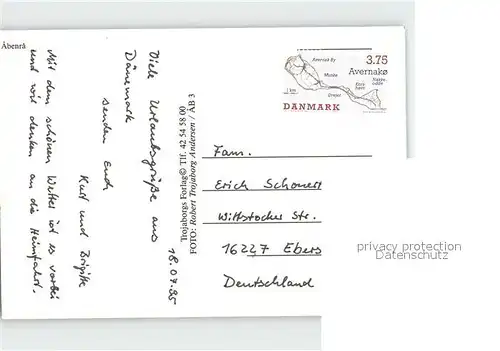 Åbenrå
18.07.95
Viele Urlaubsgrüße aus
Dänemark
senden Euch
Kurt und Brigitte
Mit dem schönen Wetter ist es vorbei
und wir denken an die Heimfahrt.
Trojaborgs Forlag © Tlf. 42 54 58 00
FOTO: Robert Trojaborg Andersen / AB 3
3.75
Avernakø
Avernak By
Munke
Korshavn
Drejet
1 km
DANMARK
Fam.
Erich
Wittstocker Str.
16227 Ebers
Deutschland
privacy protection
Datenschutz